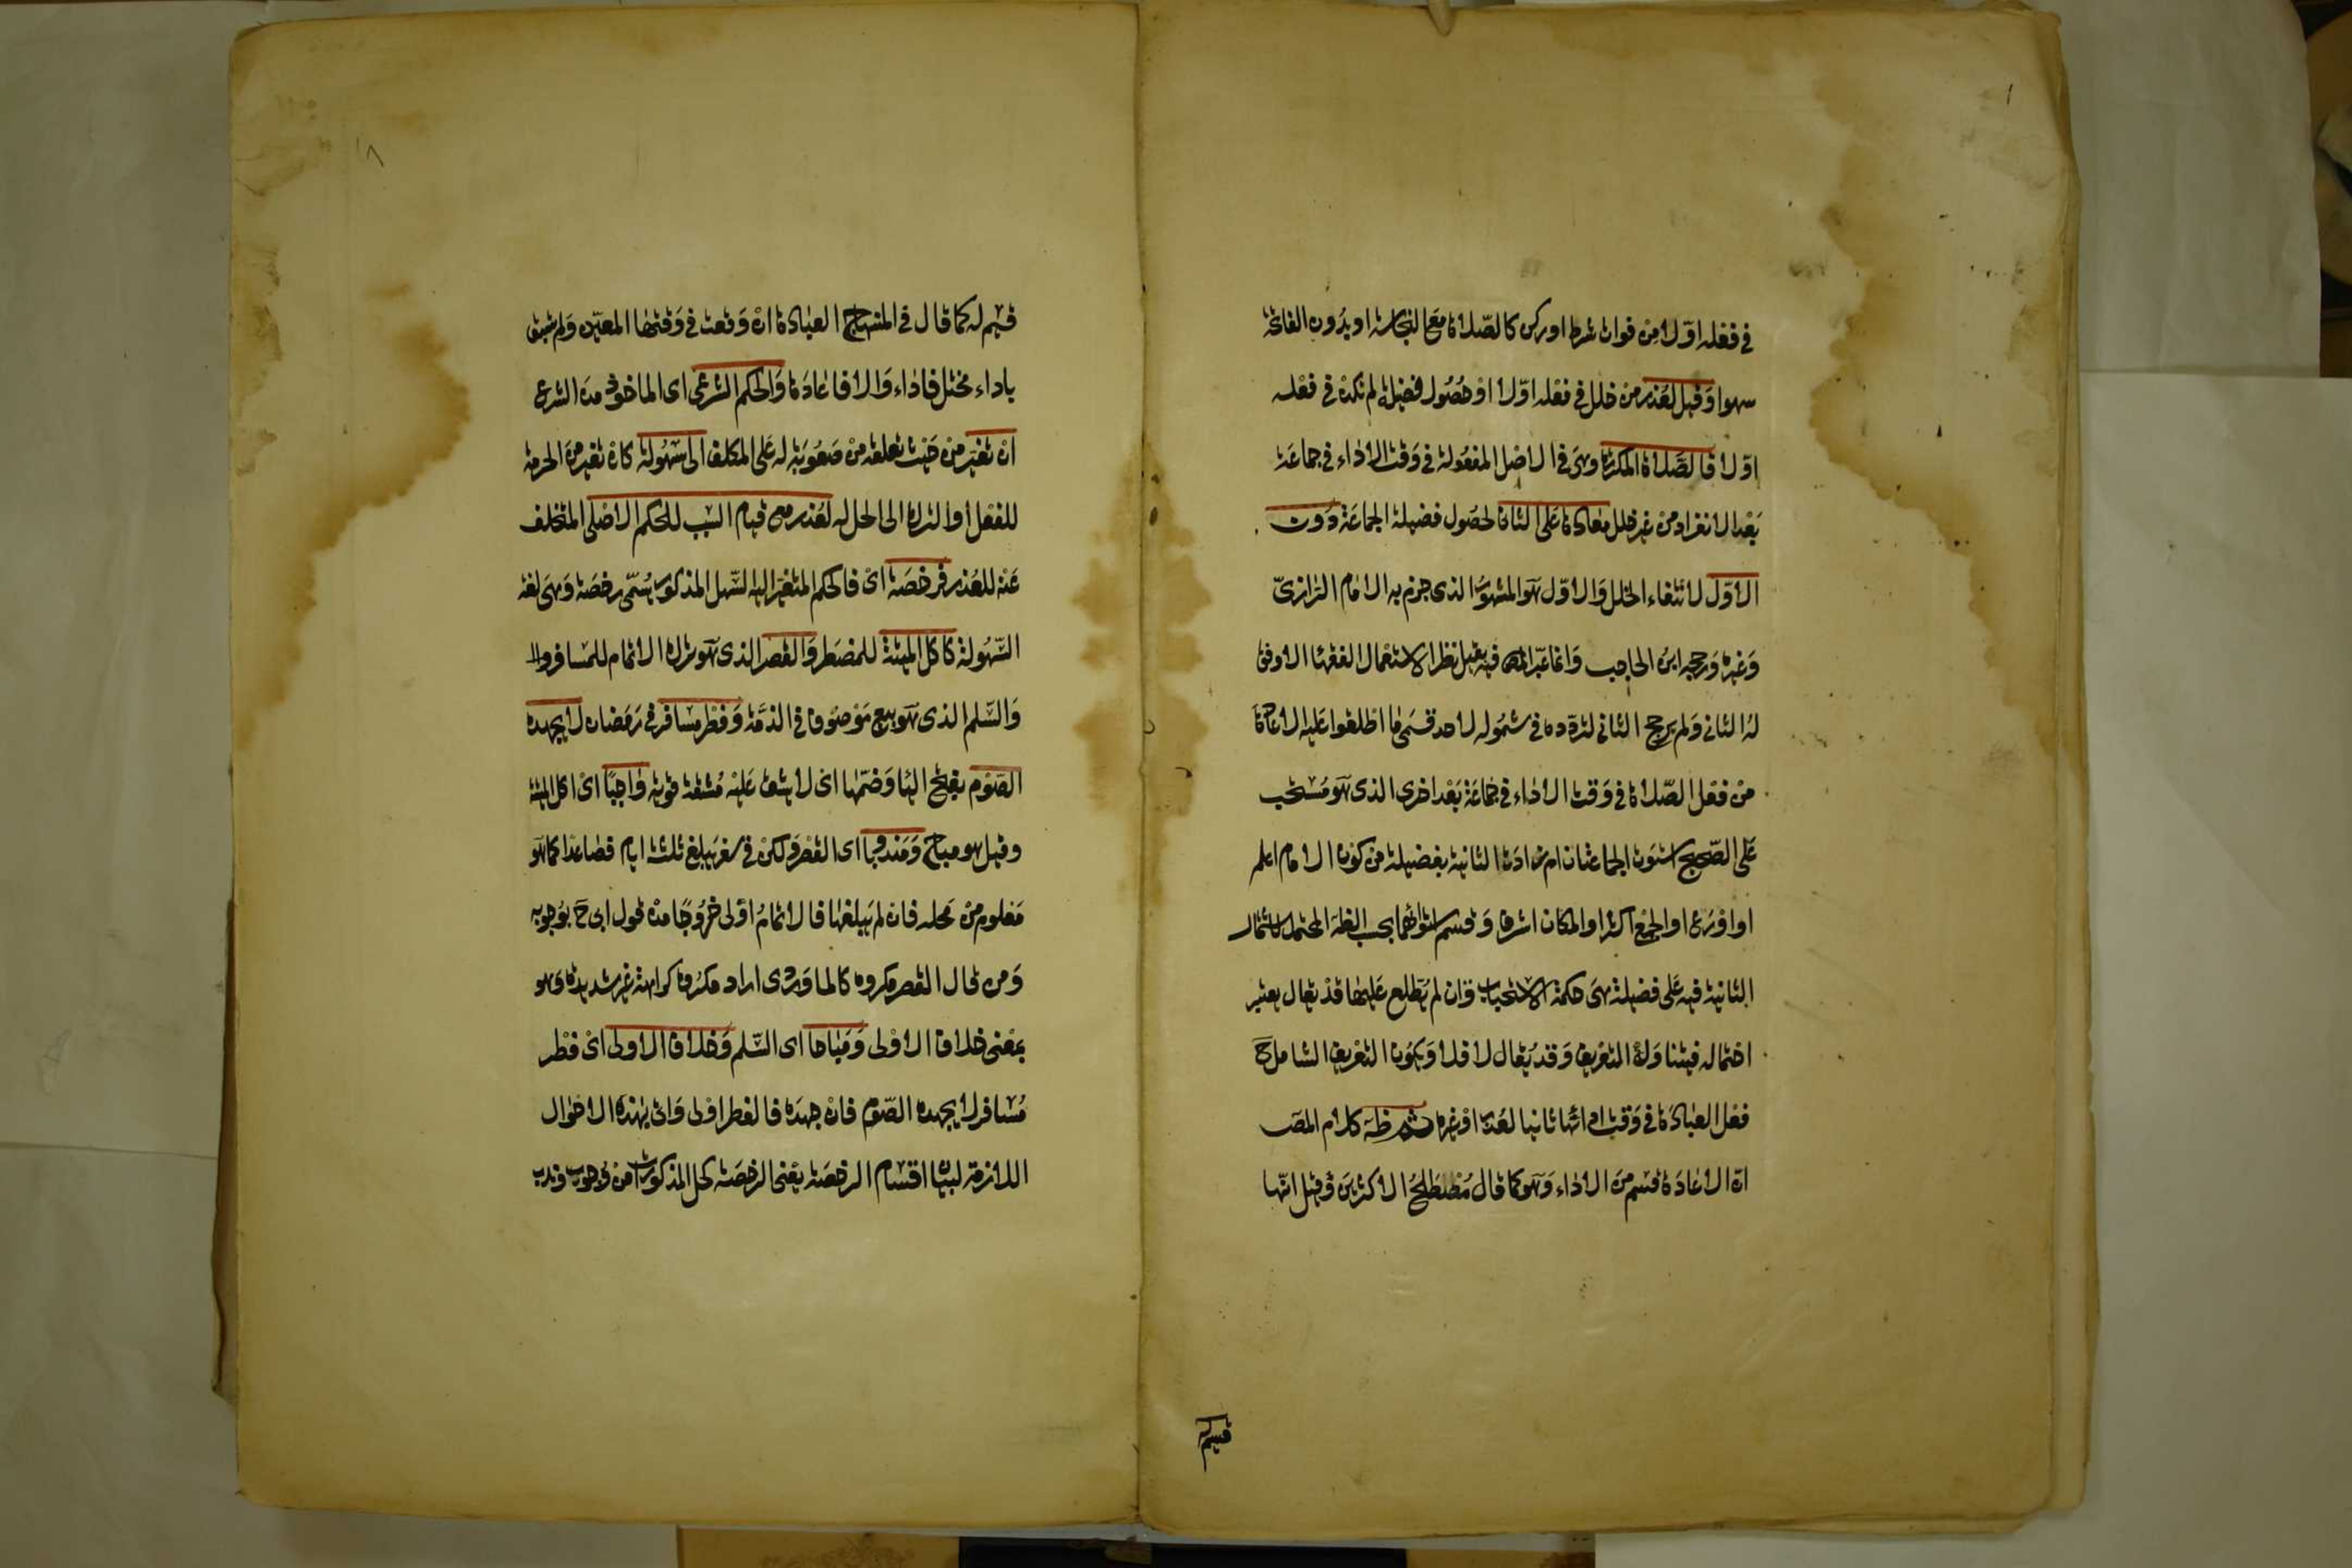 في فعله اوّلا مِن فوات شرط او ركن كالصّلاة مع النجاسة او بدُون الفاتحة
سهوا وَقيل لعُذر من خلل في فعله اوّلا اوْ حصُول فضيلة لم تكن في فعله
اوّلا فالصَّلاة المكرّرة وهىَ في الاصل المفعُولة في وَقت الاداء في جماعَة
بَعْد الانفراد من غير خلل معادة عَلى الثانى لحصُول فضيلة الجماعَة دُون
الاوّل لانتفاء الخلل وَالاوّل هوَ المشهوُر الذى جزم به الامام الرّازىّ
وَغيره وَرجحه ابن الحاجب وَانما عبّر المص فيه بقيل نظرا لاستعمال الفقهاء الاوفق
لهُ الثانى وَلم يرجح الثانى لتردّده في شمُوله لاحد قسمَى ما اطلقوا عَليه الاعادة
من فعْل الصّلاة في وَقت الاداء في جماعَة بَعْد اخرى الذى هوَ مُسْتحَب
عَلى الصّحيح استوَت الجماعتان ام زادَت الثانية بفضيلة من كون الامام اعلم
او اورَع او الجمْع اكثر او المكان اشرف وَقسم استوائهما بحسب الظاهر المحتمل لاشتمال
الثانية فيه عَلى فضيلة هىَ حكمة الاستحباب وَان لم يُطّلع عَليهَا قدْ يقال يعتبر
احتماله فيتناوَله التعريف وَقد يُقال لا فلا وَيكوُن التعْريف الشامل ح
فعْل العبَادَة في وَقت ادائها ثانيا لعُذر اوْ غيره ثم ظاهر كلام المصَ
انّ الاعَادَة قسم من الاداء وَهوَ كما قال مُصْطلحُ الاكثرينَ وَقيل انّها
قسيم له
قسيم له كما قال في المنهاج العبَادة انْ وَقعت في وَقتهَا المعيّن وَلم تُسبق
باداء مختل فاداء وَالا فاعادَة وَالحكم الشرعى اى الماخوذ من الشرع
انْ تغيّر من حَيْث تعلقه منْ صعُوبَة له عَلى المكلف الى سُهُولة كانْ تغير منَ الحرمَة
للفعْل او الترك الى الحل له لعُذر مع قيام السبَب للحكم الاصْلى المتخلف
عَنْه للعُذر فرخصَة اىْ فالحكم المتغيّر اليه السّهل المذكور يُسَمّى رخصَة وَهىَ لغة
السّهُولة كاكل الميتة للمضطر وَالقصر الذى هوَ ترك الاتمام للمسَافر
وَالسّلم الذى هوَ بيع مَوْصوُف في الذمَّة وَفطر مسَافر في رَمَضان لا يجهده
الصّوْم بفتح اليا وَضمّها اى لا يشق عَليْه مُشقة قويّة واجبًا اىْ اكل الميتة
وقيل هو مباح وَمَندُوبا اى القصْر وَلكنْ في سفر يَبلغ ثلثة ايام فصَاعدًا كما هوَ
مَعْلوم من محله فان لم يَبلغهَا فالاتمامُ اوْلى خرُوجًا منْ قول ابى ح بوُجوبه
وَمن قال القصْر مكروه كالماوَرْدى اراد مكرُوها كراهة غير شديدة وَهو
بمعْنى خلاف الاوْلى وَمُبَاحا اى السّلم وَخلاف الاولى اىْ فطْر
مُسَافر لا يجهده الصّوْم فانْ جهدَهُ فالفطر اوْلى وَاتى بهٰذه الاحْوال
اللازمة لبيان اقسَام الرخصَة يَعْنى الرخصَة كحل المذكورات من وُجوب وندب